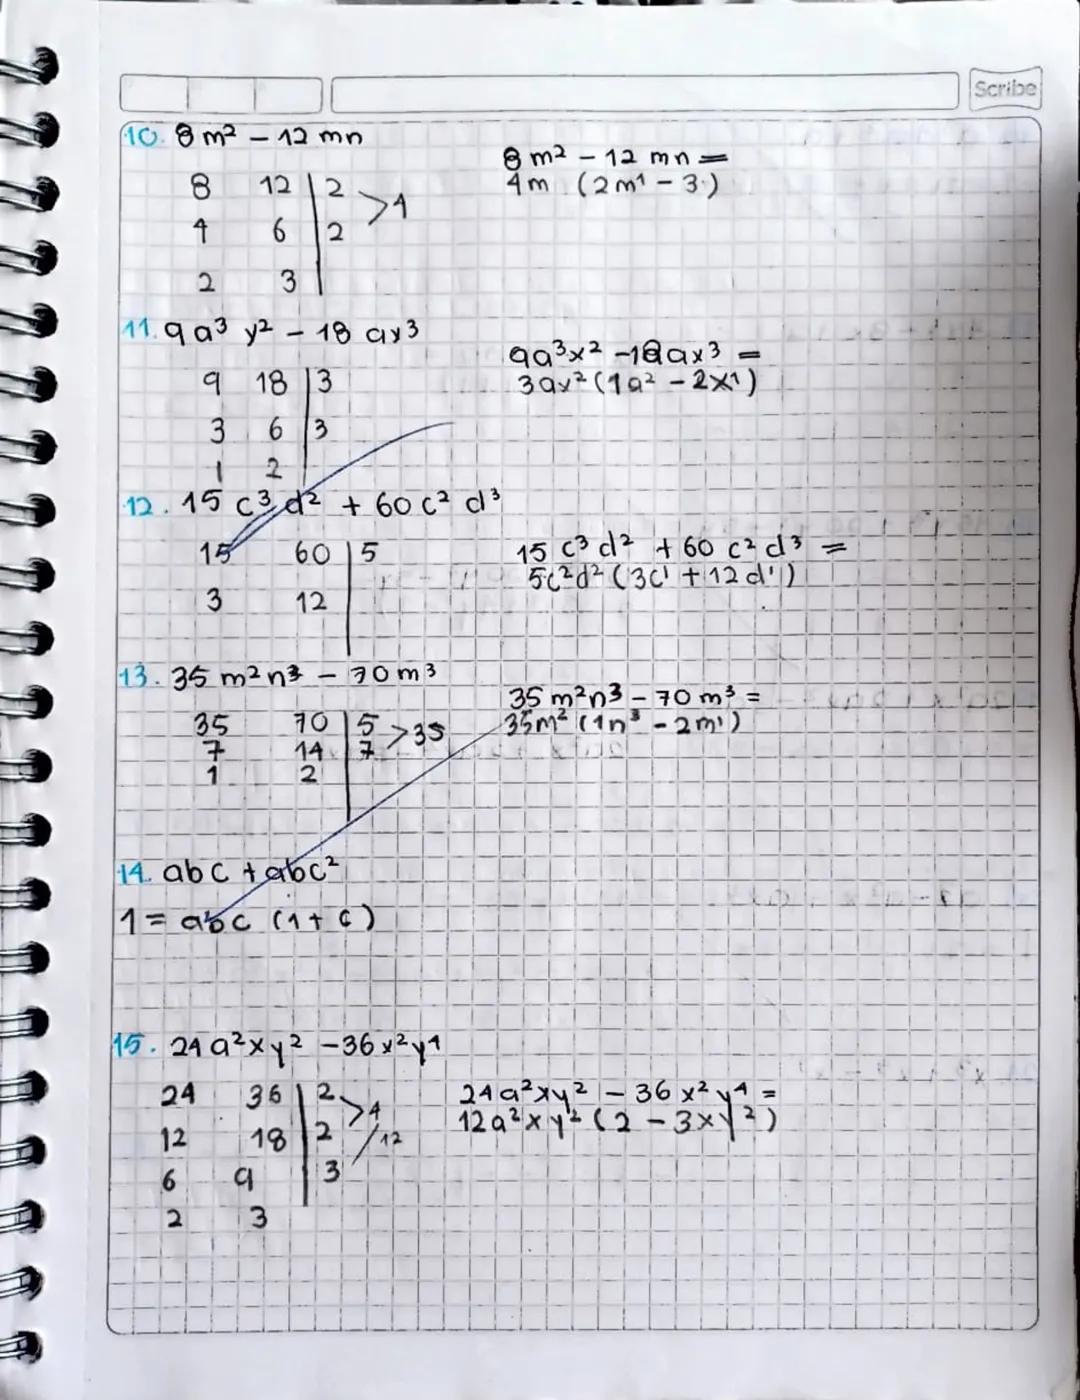 Scribe
10. 8m² – 12 mn
8 12 2
4 6 2 >4
2 3
8m² – 12 mn =
4m (2m¹ – 3)
11. 9a³ y² – 18 ax³
9 18 3
3 6 3
1 2
9a³x² – 18ax³ =
3ax² (1a² – 2x¹)
12. 15 c³ d² + 60 c² d³
15 60 5
3 12
15 c³ d² + 60 c² d³ =
5c²d² (3c¹ + 12 d¹)
13. 35 m²n³ – 70 m³
35 70 5
7 14 7 >35
1 2
35 m²n³ – 70 m³ =
35m² (1n³ – 2m¹)
14. abc + abc²
1 = abc (1 + c)
15. 24 a²xy² – 36 x²y⁴
24 36 2
12 18 2 >4
6 9 3 /12
2 3
24a²xy² – 36 x²y⁴ =
12a²xy² (2 – 3xy²)